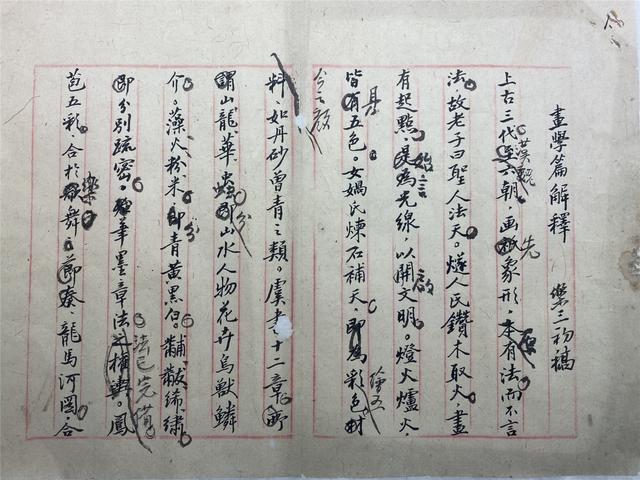 畫學篇解釋 樂三初稿
上古三代至六朝，画衹象形，本有法而不言
漢魏 先 原
法，故老子曰聖人法天。燧人民鑽木取火，畫
有起點，是為光線，以開文明。燈火爐火，
始言 啟
皆有五色。女媧氏煉石補天，即為彩色材
具 繪五
今之顏
料，如丹砂曾青之類。虞書十二章，所
謂山龍華蟲，即山水人物花卉鳥獸鱗
分
介。藻火粉米，即青黃黑白。黼黻絺繡，
分
即分別疏密。筆墨章法之。鳳
法已完備
苞五彩，合於舞節奏，龍馬河圖，合
樂